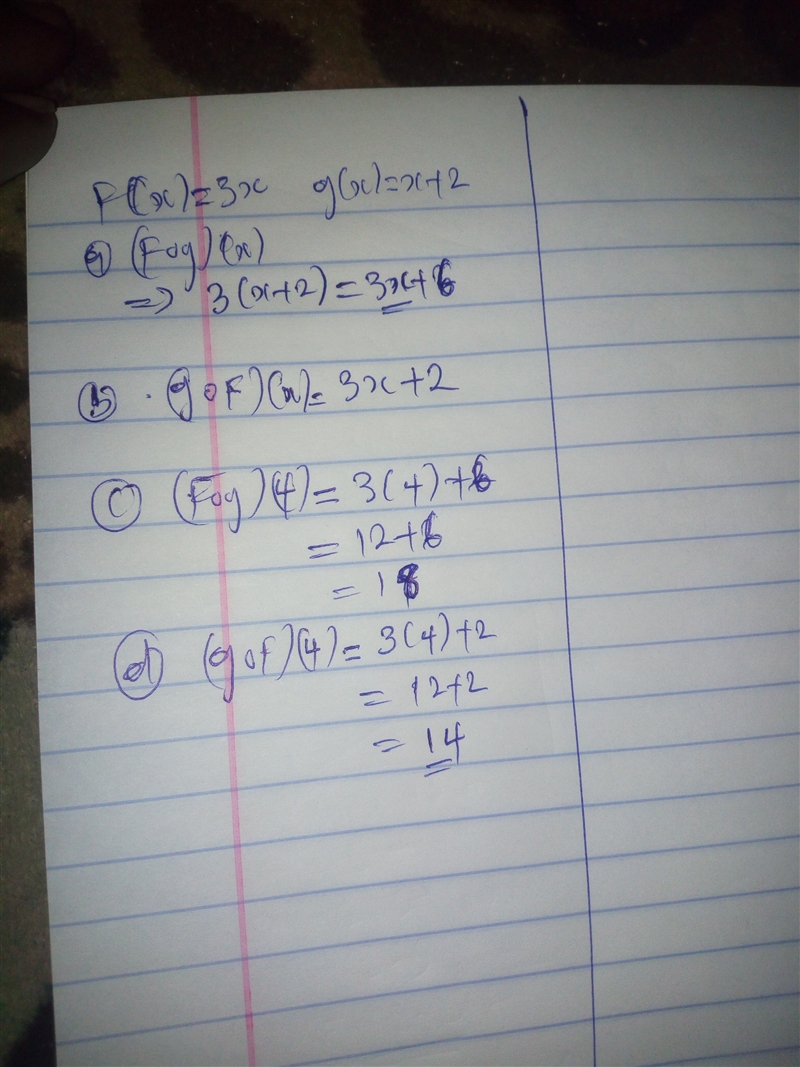 F(x)=3x g(x)=x+2
a (Fog)(x)
=> 3(x+2)=3x+6
b . (goF)(x)= 3x+2
c (Fog)(4)= 3(4)+6
= 12+6
= 18
d (gof)(4)= 3(4)+2
= 12+2
= 14